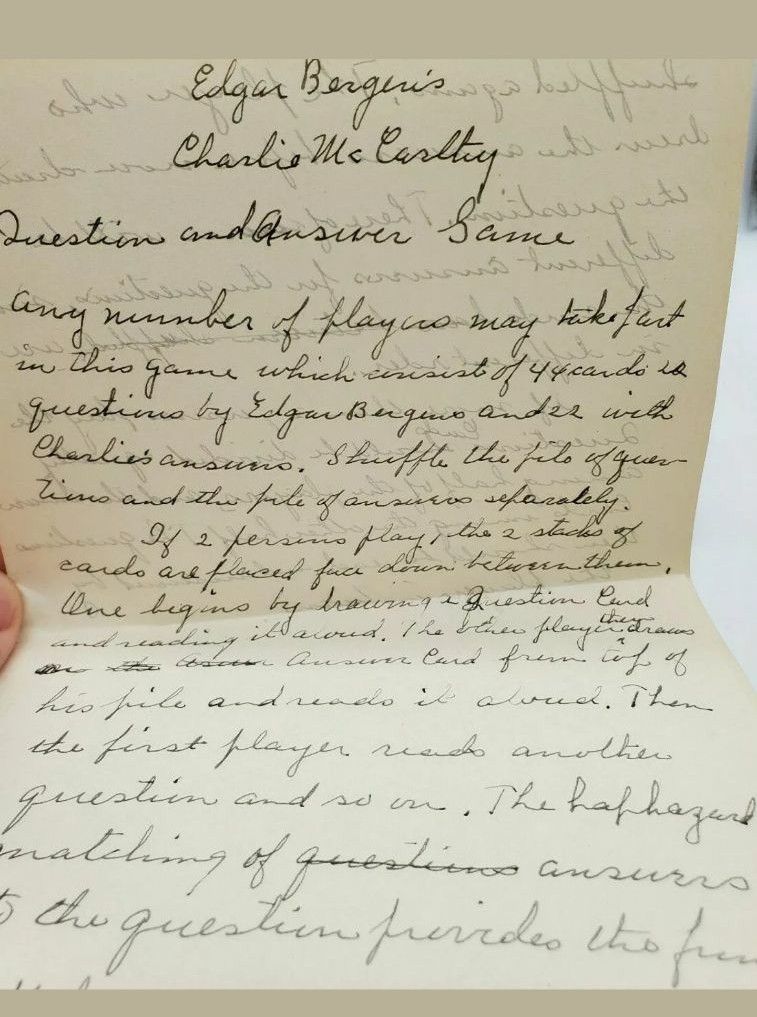 Edgar Bergen's
Charlie Mc Carthy
Question and Answer Game
Any number of players may take part
in this game which consist of 44 cards 22
questions by Edgar Bergens and 22 with
Charlie's answers. Shuffle the pile of ques-
tions and the pile of answers separately.
If 2 persons play, the 2 stacks of
cards are placed face down between them.
One begins by drawing a Question Card
and reading it aloud. The other player then draws
Answer Card from top of
his pile and reads it aloud. Then
the first player reads another
question and so on. The haphazard
matching of questions answers
to the question provides the fun